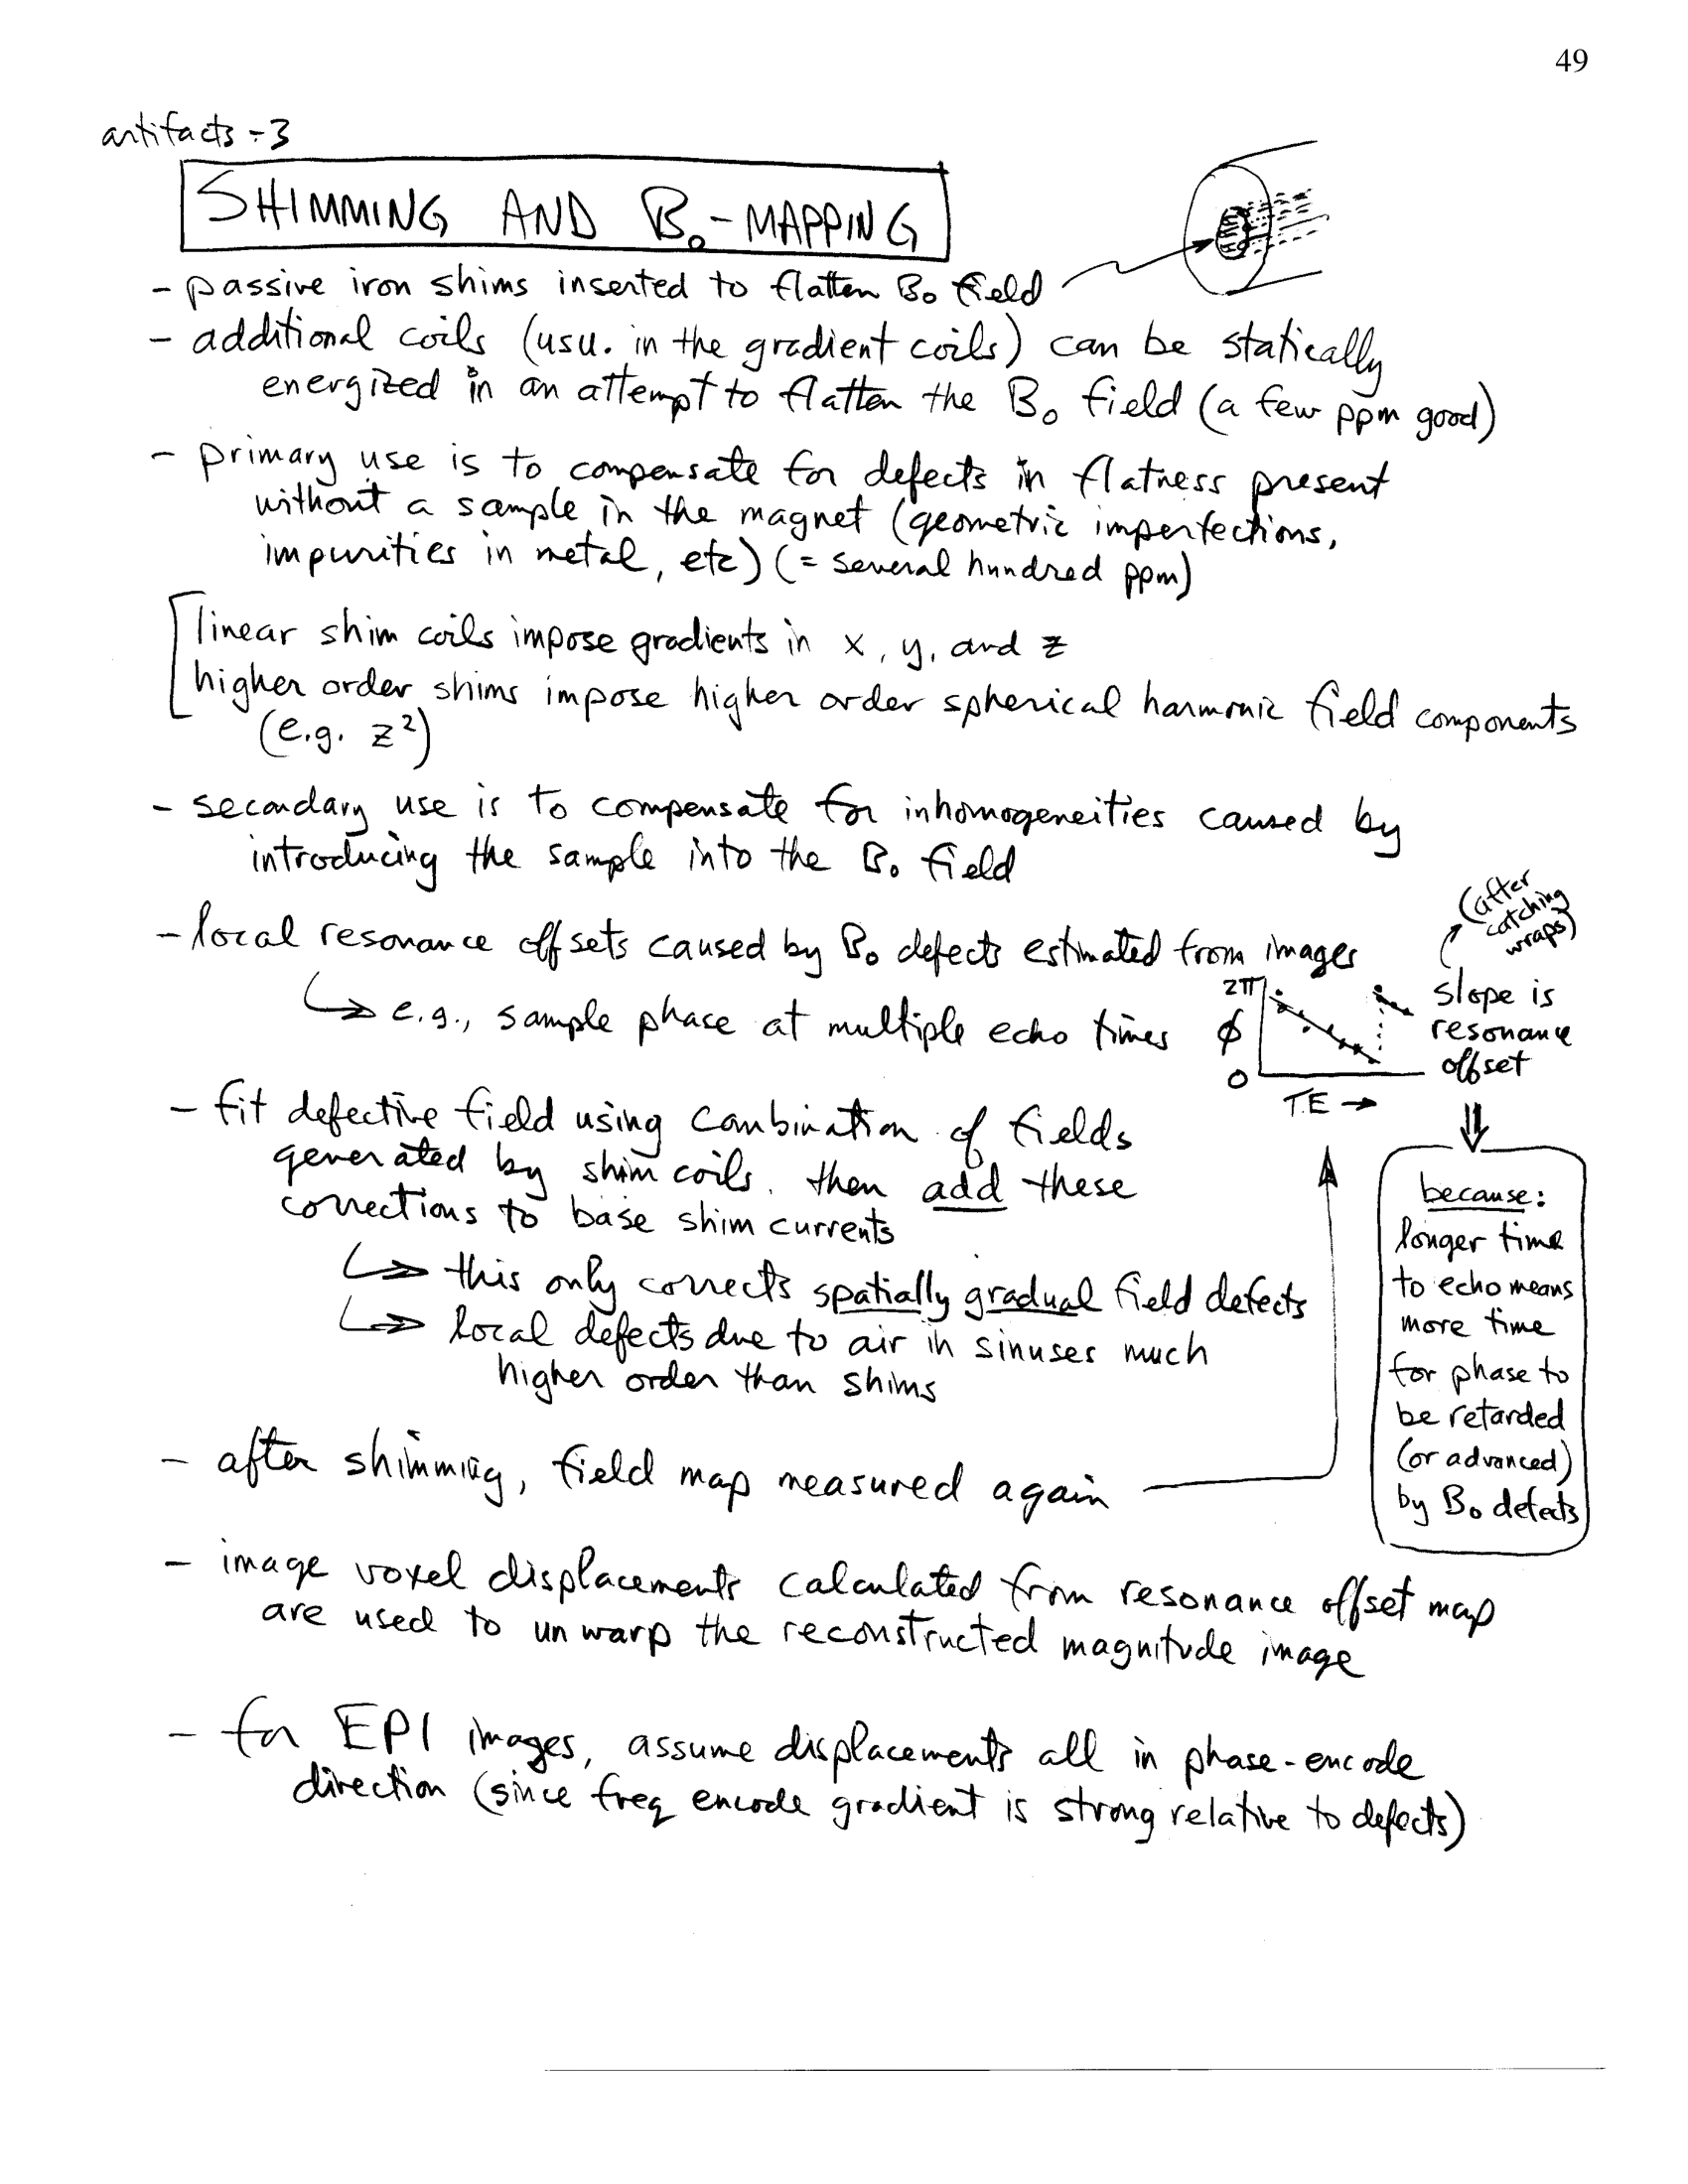 49
artifacts-3
SHIMMING AND B₀-MAPPING
- passive iron shims inserted to flatten B₀ field
- additional coils (usu. in the gradient coils) can be statically
energized in an attempt to flatten the B₀ field (a few ppm good)
- primary use is to compensate for defects in flatness present
without a sample in the magnet (geometric imperfections,
impurities in metal, etc) (= several hundred ppm)
linear shim coils impose gradients in x, y, and z
higher order shims impose higher order spherical harmonic field components
(e.g. z²)
- secondary use is to compensate for inhomogeneities caused by
introducing the sample into the B₀ field
- local resonance offsets caused by B₀ defects estimated from images
↳ e.g., sample phase at multiple echo times
2π
ϕ
0
TE →
(after
catching
wraps)
slope is
resonance
offset
⇓
because:
longer time
to echo means
more time
for phase to
be retarded
(or advanced)
by B₀ defects
- fit defective field using combination of fields
generated by shim coils. then add these
corrections to base shim currents
↳ this only corrects spatially gradual field defects
↳ local defects due to air in sinuses much
higher order than shims
- after shimming, field map measured again
- image voxel displacements calculated from resonance offset map
are used to unwarp the reconstructed magnitude image
- for EPI images, assume displacements all in phase-encode
direction (since freq encode gradient is strong relative to defects)